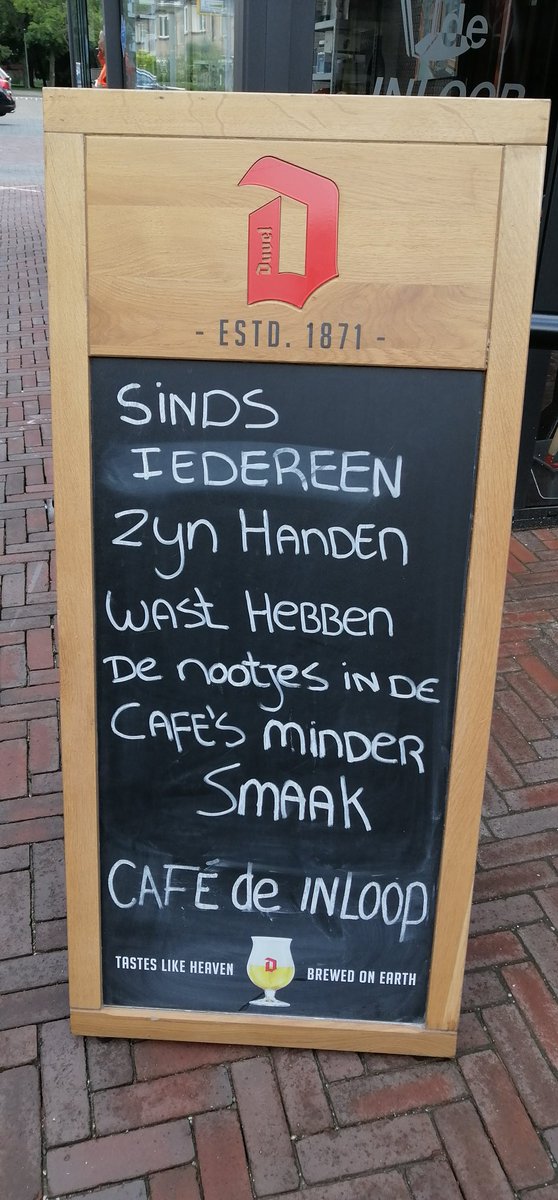 de
INLOOP
Duvel
- ESTD. 1871 -
SiNDS
IEDEREEN
Zyn HANDEN
WASt HEBBEN
DE nootjes iN DE
CAFE'S MiNDER
SMAAK
CAFÉ de INLOOP
TASTES LIKE HEAVEN BREWED ON EARTH